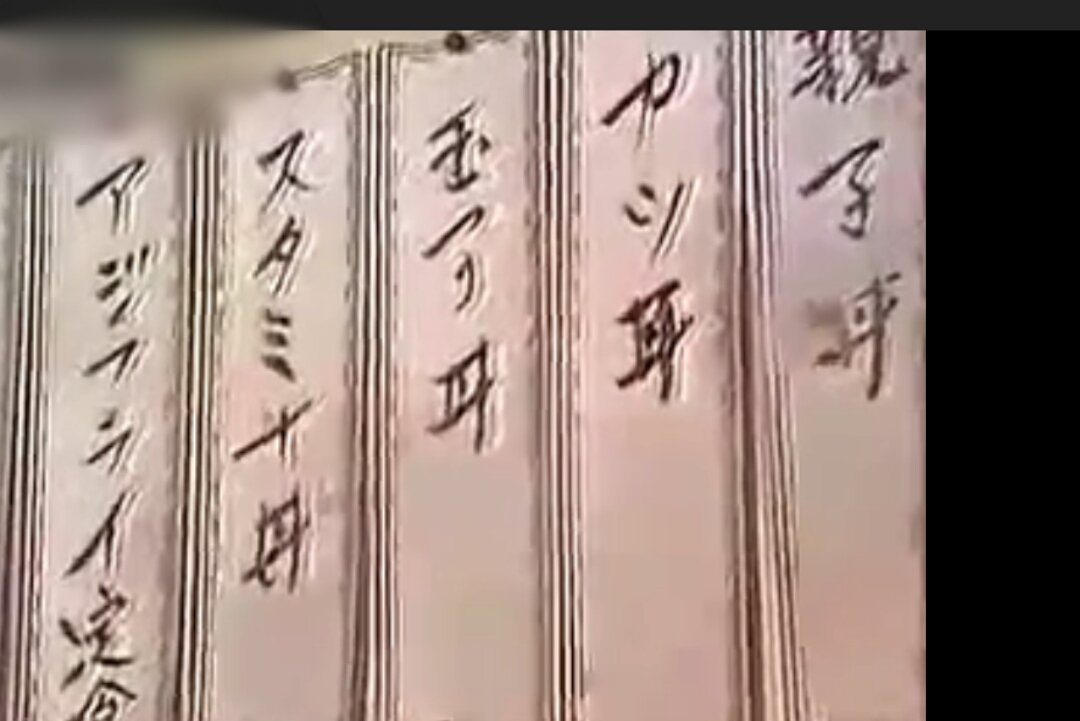 親子丼
カツ丼
スタミナ丼
アジフライ定食